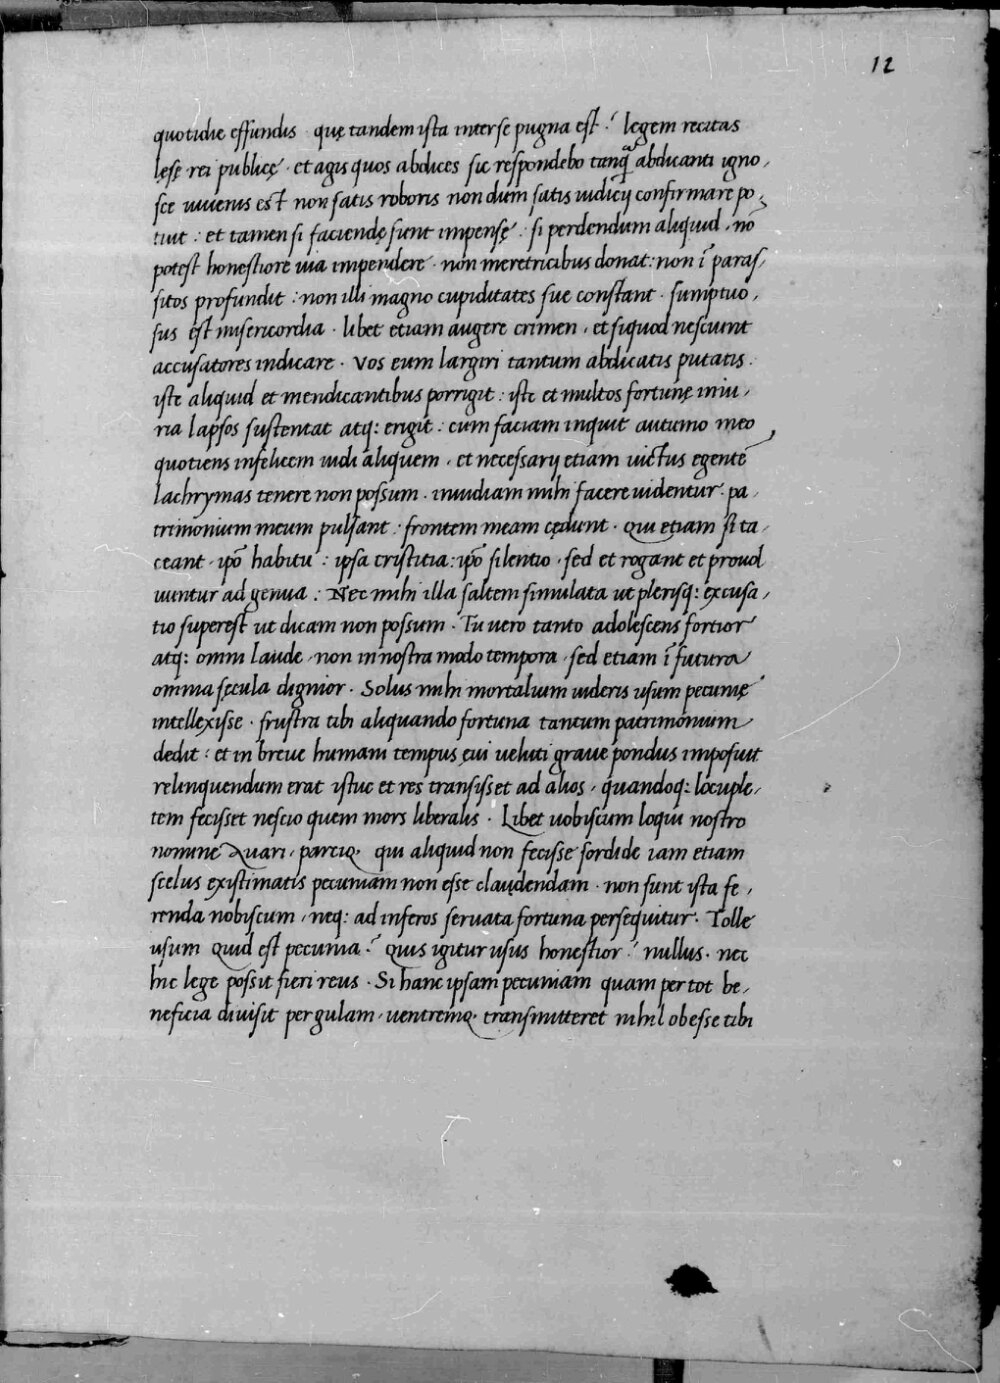 12
quotidie effundis · quę tandem ista inter se pugna est ·? legem recitas
lęsę rei publicę · et agis quos abdices sic respondebo tanq̃ abdicanti igno,
sce iuuenis est non satis roboris non dum satis iudicij confirmare po,
tuit : et tamen si faciendę sunt impensę : si perdendum aliquid , nō
potest honestiore uia impendere · non meretricibus donat : non ī paras,
sitos profundit : non illi magno cupiditates suę constant · sumptuo,
sus est misericordia · libet etiam augere crimen , et siquod nesciunt
accusatores indicare · Vos eum largiri tantum abdicatis putatis :
iste aliquid et mendicantibus porrigit : iste et multos fortunę iniu,
ria lapsos sustentat atq: erigit : cum faciam inquit autumo meo ,
quotiens infelicem uidi aliquem , et necessarij etiam uictus egentē
lachrymas tenere non possum · inuidiam mihi facere uidentur · pa,
trimonium meum pulsant : frontem meam cędunt · Qui etiam si ta,
ceant · ipō habitu : ipsa tristitia : ipō silentio , sed et rogant et prouol
uuntur ad genua : Nec mihi illa saltem simulata ut plerisq: excusa,
tio superest ut dicam non possum · Tu uero tanto adolescens fortior
atq: omni laude , non in nostra modo tempora , sed etiam ī futura
omnia sęcula dignior · Solus mihi mortalium uideris usum pecunię
intellexisse · frustra tibi aliquando fortuna tantum patrimonium
dedit : et in breue humani tempus ęui ueluti graue pondus imposuit
relinquendum erat istuc et res transisset ad alios , quandoq: locuple,
tem fecisset nescio quem mors liberalis · Libet uobiscum loqui nostro
nomine Auari , parciq · qui aliquid non fecisse sordide iam etiam
scelus existimatis pecuniam non esse claudendam · non sunt ista fe,
renda nobiscum , neq: ad inferos seruata fortuna persequitur · Tolle
usum Quid est pecunia ·? Quis igitur usus honestior ? nullus · nec
hic lege possit fieri reus · Si hanc ipsam pecuniam quam per tot be,
neficia diuisit per gulam , uentremq · transmitteret nihil obesse tibi